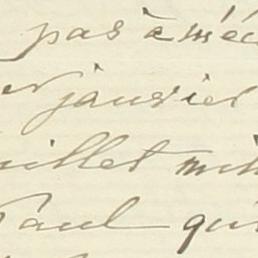 pas à méc
er janvier
uillet mil
Paul qu'